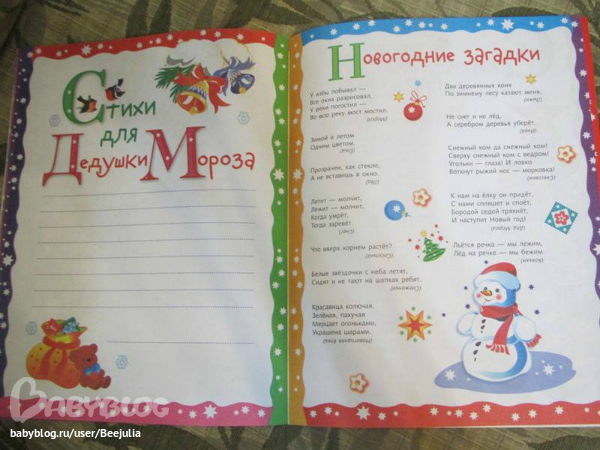 Стихи
для
Дедушки Мороза
Новогодние загадки
У избы побывал —
Все окна разрисовал,
У реки погостил —
Во всю реку мост мостил.
(Мороз)
Зимой и летом
Одним цветом.
(Ёлка)
Прозрачен, как стекло,
А не вставишь в окно.
(Лёд)
Летит — молчит,
Лежит — молчит,
Когда умрёт,
Тогда заревёт.
(Снег)
Что вверх корнем растёт?
(Сосулька)
Белые звёздочки с неба летят,
Сидят и не тают на шапках ребят.
(Снежинки)
Красавица колючая,
Зелёная, пахучая
Мерцает огоньками,
Украшена шарами.
(Новогодняя ёлка)
Два деревянных коня
По зимнему лесу катают меня.
(Лыжи)
Не снег и не лёд,
А серебром деревья уберёт.
(Иней)
Снежный ком да снежный ком!
Сверху снежный ком с ведром!
Угольки — глаза! И ловко
Воткнут рыжий нос — морковка!
(Снеговик)
К нам на ёлку он придёт,
С нами спляшет и споёт,
Бородой седой тряхнёт,
И наступит Новый год!
(Дед Мороз)
Льётся речка — мы лежим,
Лёд на речке — мы бежим
(Коньки)
BABYBLOG
babyblog.ru/user/Beejulia